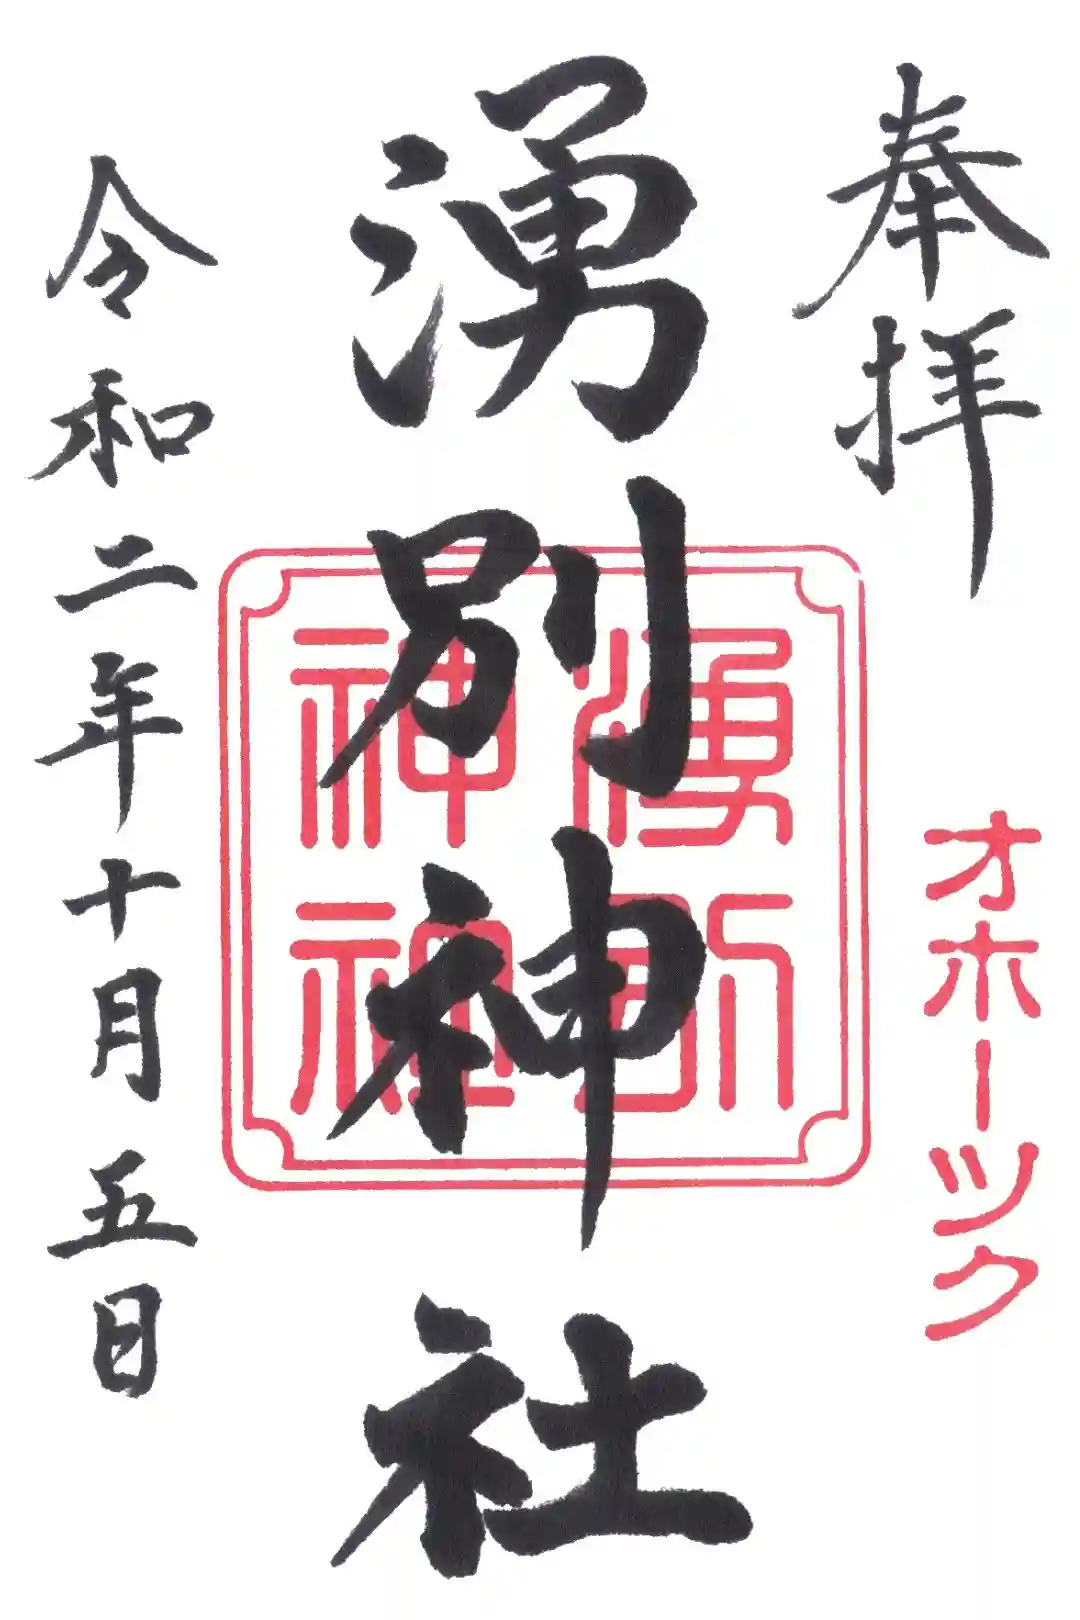 奉拝
オホーツク
湧別神社
湧別
神社
令和二年十月五日